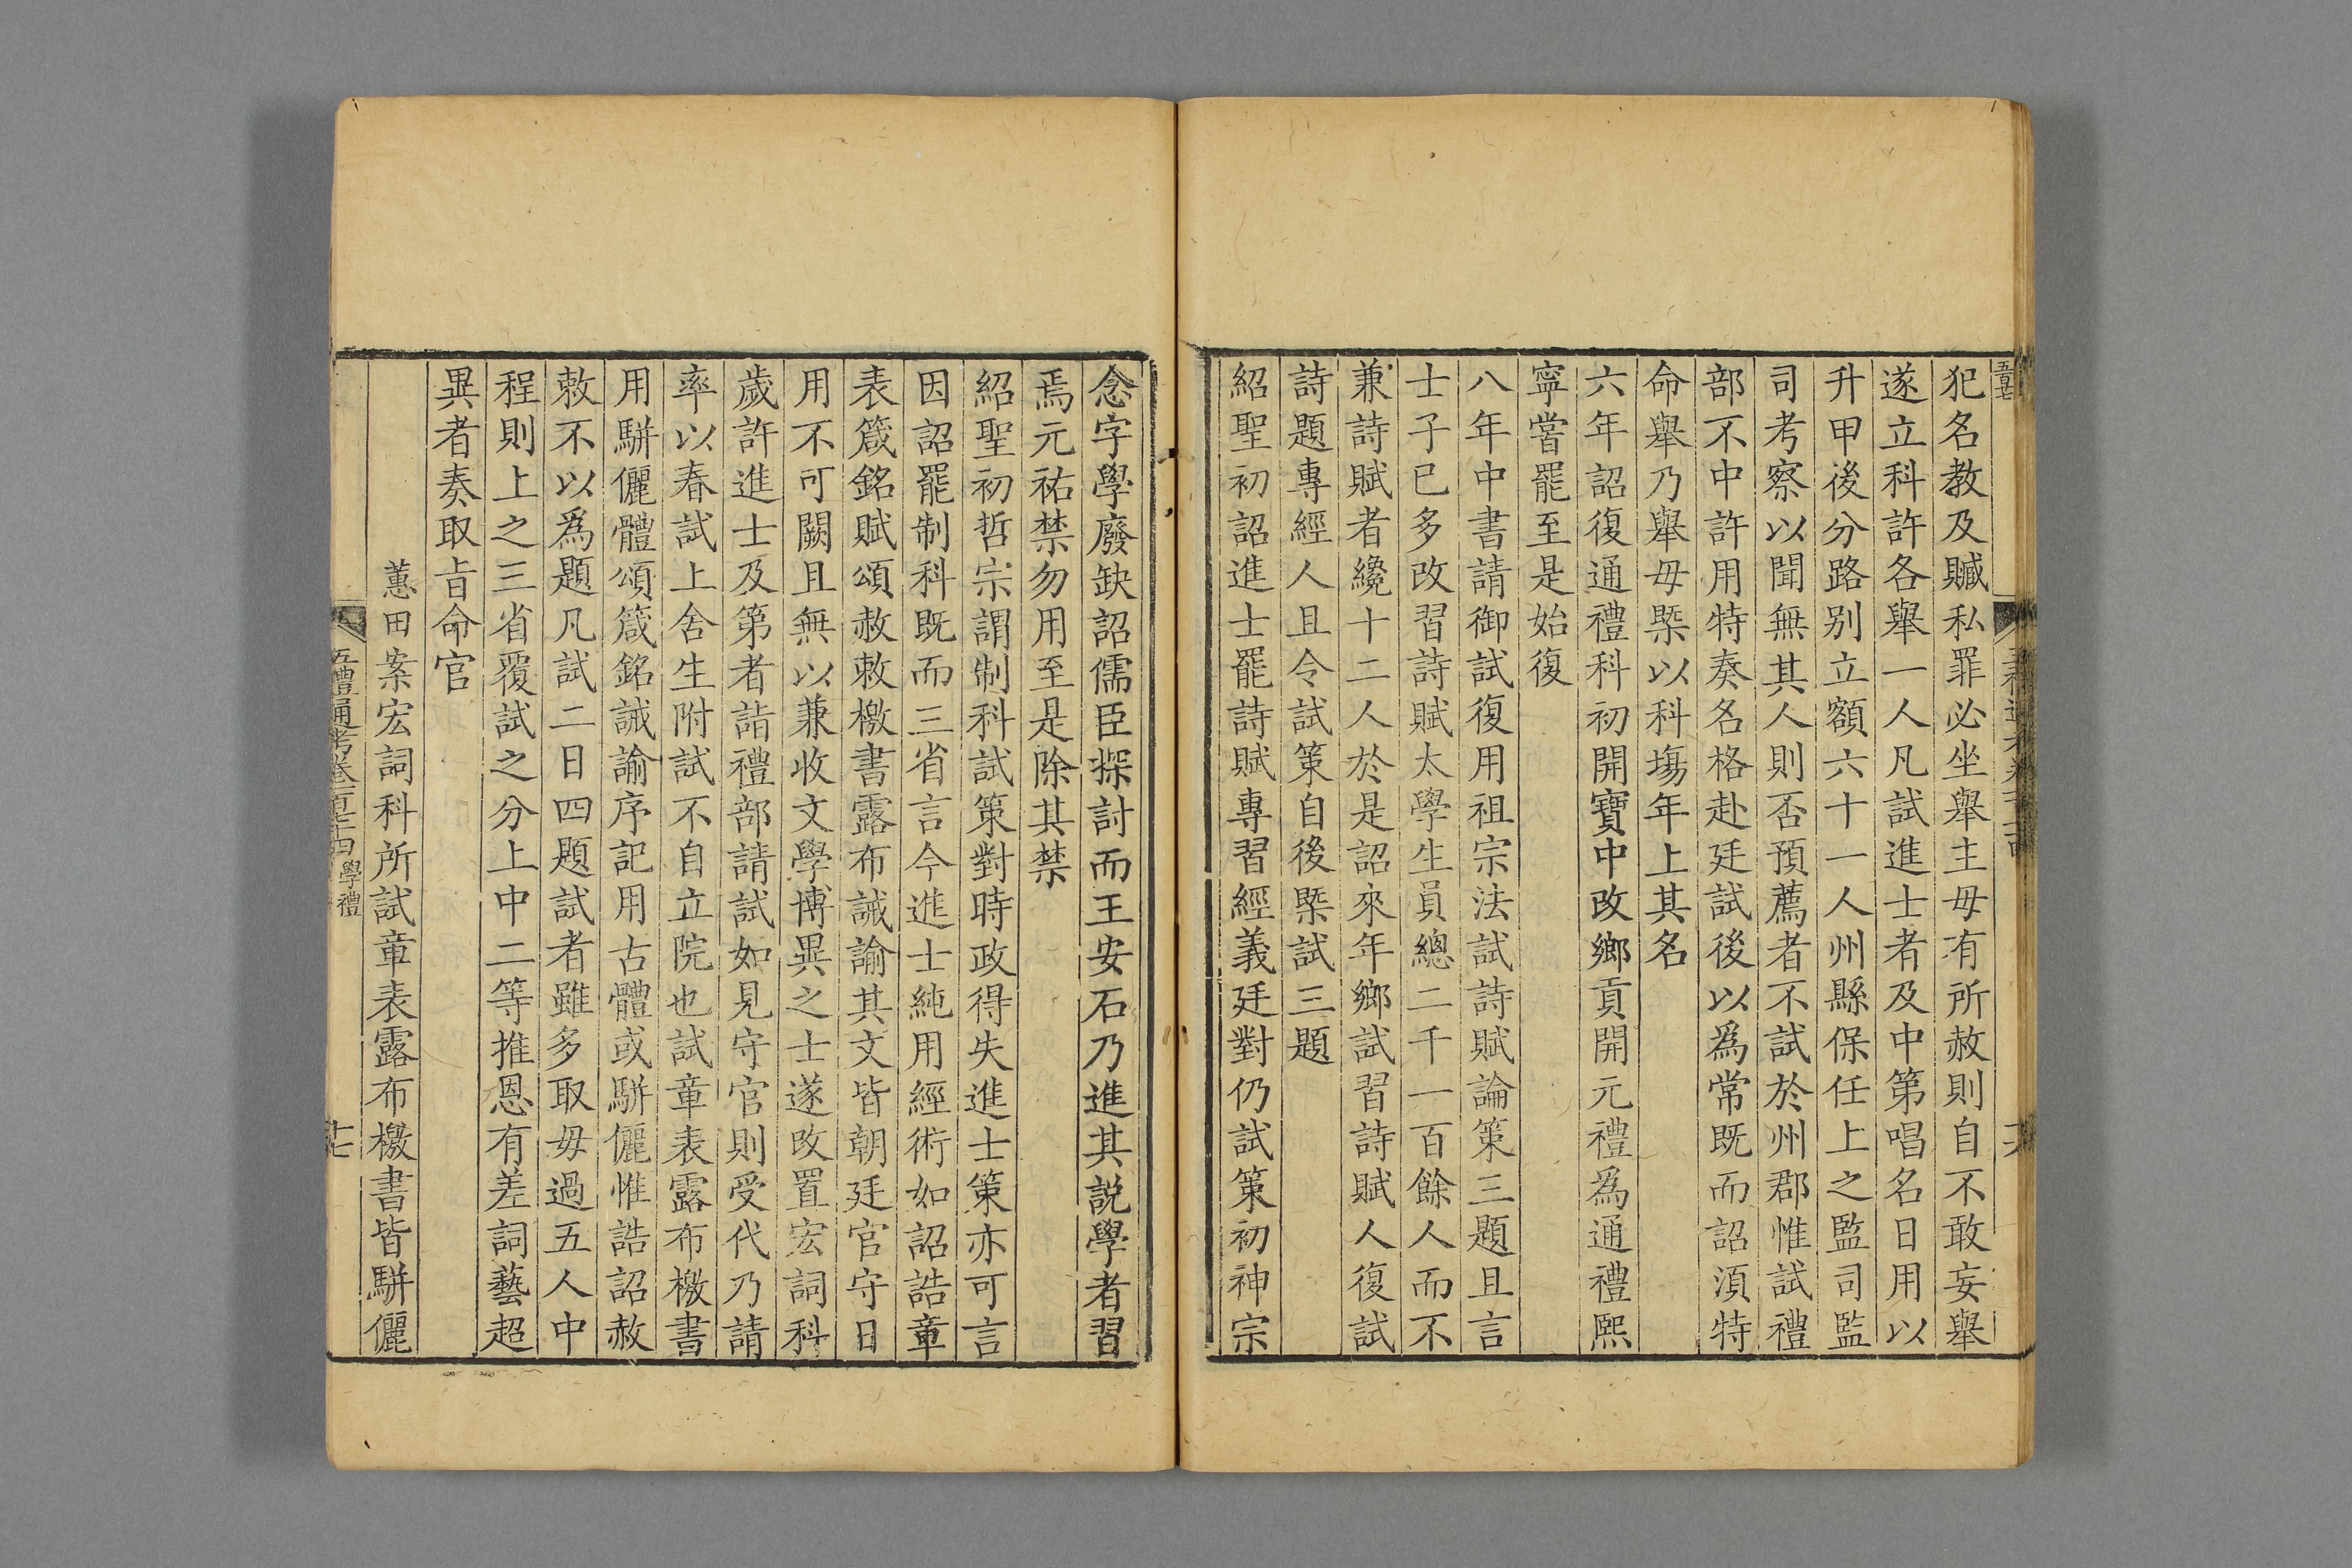 犯名教及贓私罪必坐舉主毋有所赦則自不敢妄舉
遂立科許各舉一人凡試進士者及中第唱名日用以
升甲後分路别立額六十一人州縣保任上之監司監
司考察以聞無其人則否預薦者不試於州郡惟試禮
部不中許用特奏名格赴廷試後以爲常既而詔湏特
命舉乃舉毋槩以科塲年上其名
六年詔復通禮科初開寶中改鄉貢開元禮爲通禮熙
寧嘗罷至是始復
八年中書請御試復用祖宗法試詩賦論策三題且言
士子已多改習詩賦太學生員總二千一百餘人而不
兼詩賦者纔十二人於是詔來年鄉試習詩賦人復試
詩題專經人且令試策自後槩試三題
紹聖初詔進士罷詩賦專習經義廷對仍試策初神宗
念字學廢缺詔儒臣探討而王安石乃進其説學者習
焉元祐禁勿用至是除其禁
紹聖初哲宗謂制科試策對時政得失進士策亦可言
因詔罷制科既而三省言今進士純用經術如詔誥章
表箴銘賦頌赦敕檄書露布誡諭其文皆朝廷官守日
用不可闕且無以兼收文學博異之士遂改置宏詞科
歲許進士及第者詣禮部請試如見守官則受代乃請
率以春試上舍生附試不自立院也試章表露布檄書
用駢儷體頌箴銘誡諭序記用古體或駢儷惟誥詔赦
敕不以爲題凡試二日四題試者雖多取毋過五人中
程則上之三省覆試之分上中二等推恩有差詞藝超
異者奏取旨命官
蕙田案宏詞科所試章表露布檄書皆駢儷
五禮通考卷一百七十四 學禮
十七